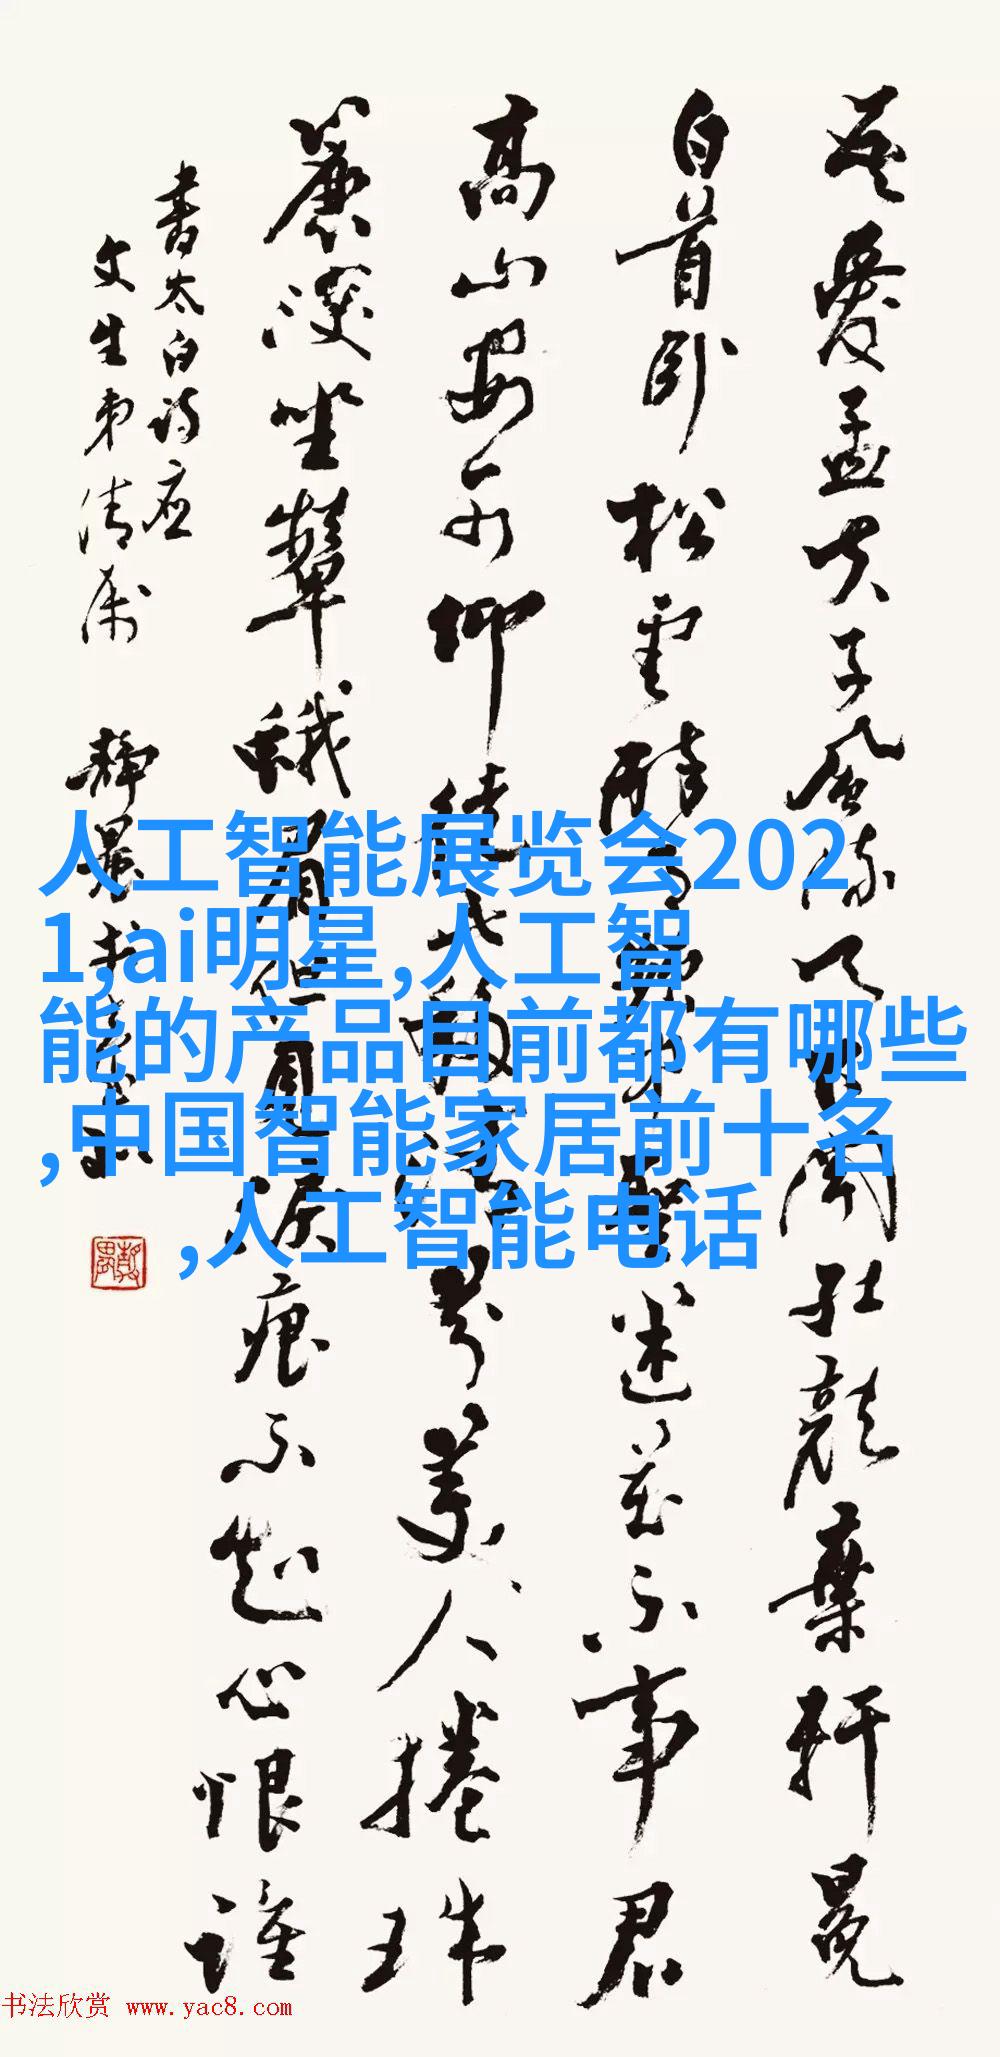 吾爱孟夫子风流天下闻红颜弃轩冕
白首卧松云醉月频中圣迷花不事君
高山安可仰徒此挹清芬美人捲珠
簾深坐颦蛾眉但见泪痕不知心恨谁
书太白诗应
文生弟清属
人工智能展览会202
1,ai明星,人工智
能的产品目前都有哪些
,中国智能家居前十名
,人工智能电话
书法欣赏 www.yac8.com